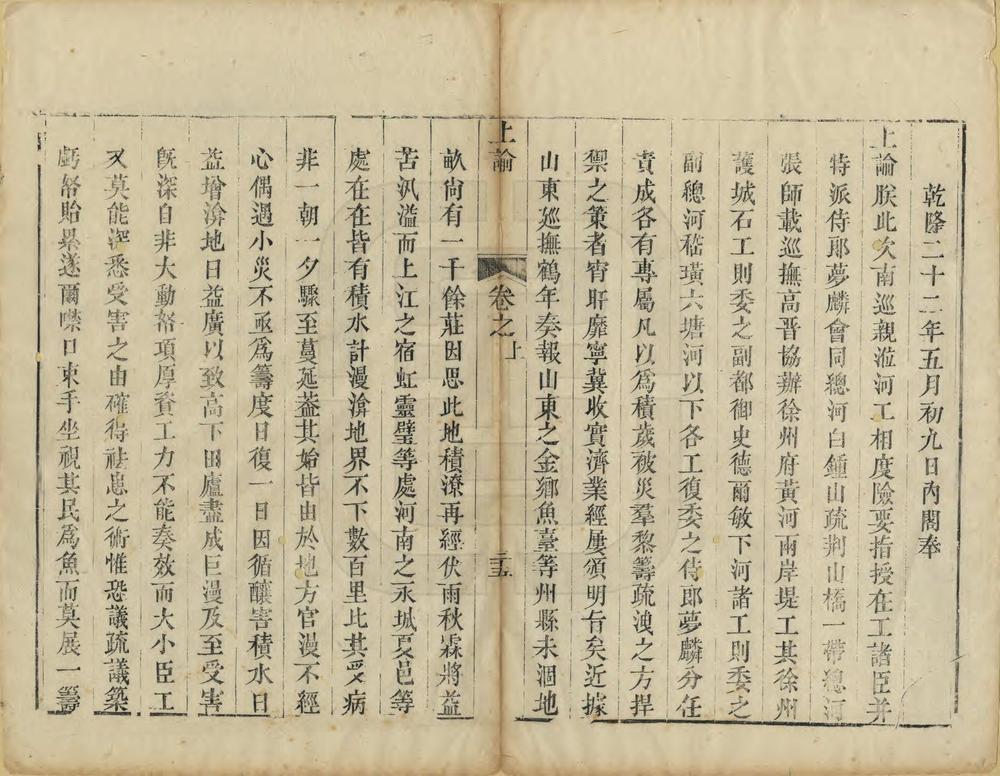 乾隆二十二年五月初九日內閣奉
上諭朕此次南巡親涖河工相度險要指授在工諸臣并
特派侍郎夢麟會同總河白鍾山疏荆山橋一帶總河
張師載巡撫高晋協辦徐州府黃河兩岸堤工其徐州
護城石工則委之副都御史德爾敏下河諸工則委之
副總河嵇璜六塘河以下各工復委之侍郎夢麟分任
責成各有專屬凡以爲積歲被災羣黎籌疏洩之方捍
禦之策者宵旰靡寧冀收實濟業經屢頒明旨矣近據
山東廵撫鶴年奏報山東之金鄉魚臺等州縣未涸地
上諭
卷之上
三五
畝尙有一千餘莊因思此地積潦再經伏雨秋霖將益
苦汎溢而上江之宿虹靈璧等處河南之永城夏邑等
處在在皆有積水計漫渰地界不下數百里比其受病
非一朝一夕驟至蔓延葢其始皆由於地方官漫不經
心偶遇小災不亟爲籌度日復一日因循釀害積水日
益增渰地日益廣以致高下田廬盡成巨漫及至受害
旣深自非大動帑項厚資工力不能奏效而大小臣工
又莫能深悉受害之由確得袪患之術惟恐議疏議築
虧帑貽累遂爾噤口束手坐視其民爲魚而莫展一籌